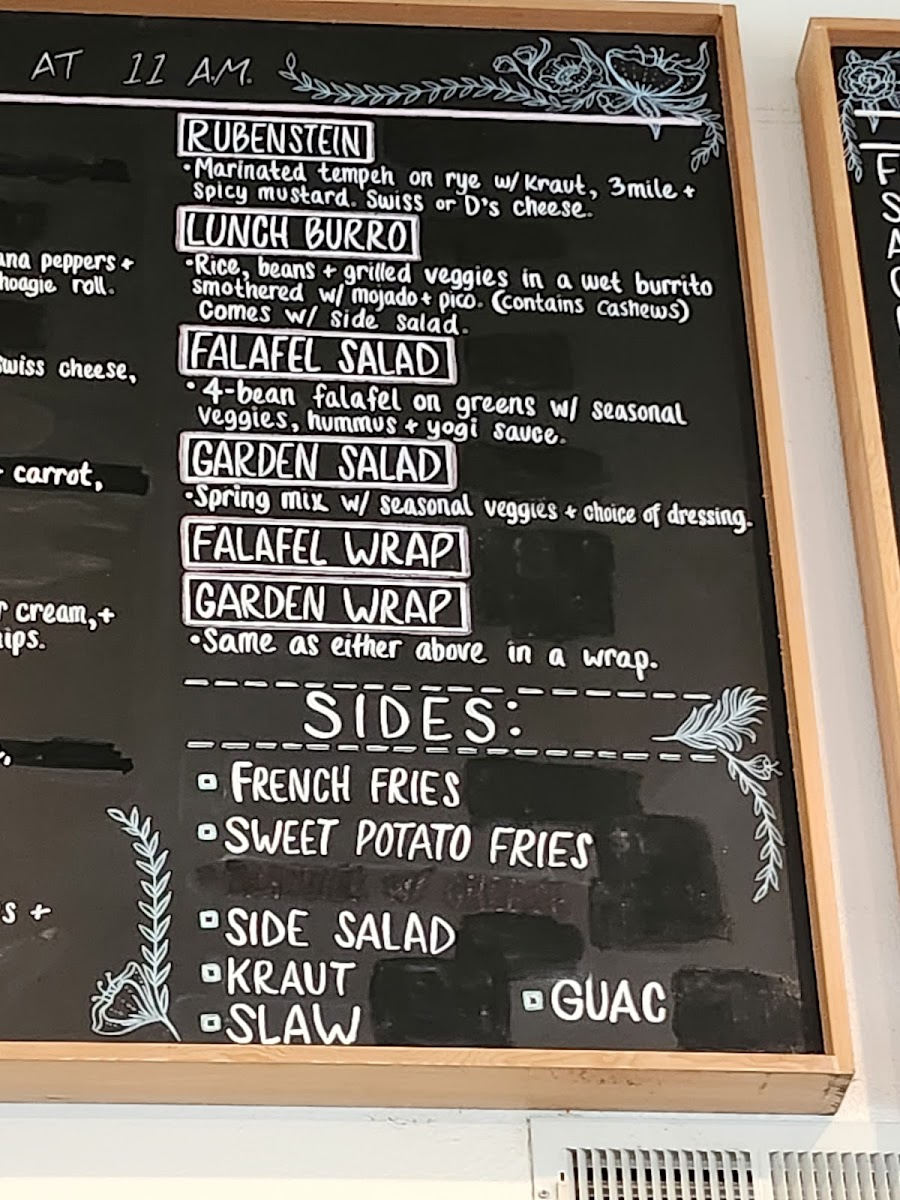 AT 11 A.M.
ana peppers +
hoagie roll.
swiss cheese,
carrot,
r cream,+
ips.
s +
RUBENSTEIN
•Marinated tempeh on rye w/ Kraut, 3mile +
spicy mustard. Swiss or D's cheese.
LUNCH BURRO
•Rice, beans + grilled veggies in a wet burrito
smothered w/ mojado + pico. (contains cashews)
Comes w/ side salad.
FALAFEL SALAD
• 4-bean falafel on greens w/ seasonal
veggies, hummus + yogi sauce.
GARDEN SALAD
•Spring mix w/ seasonal veggies + choice of dressing.
FALAFEL WRAP
GARDEN WRAP
•Same as either above in a wrap.
SIDES:
FRENCH FRIES
SWEET POTATO FRIES
SIDE SALAD
KRAUT
SLAW
GUAC
F
S
A